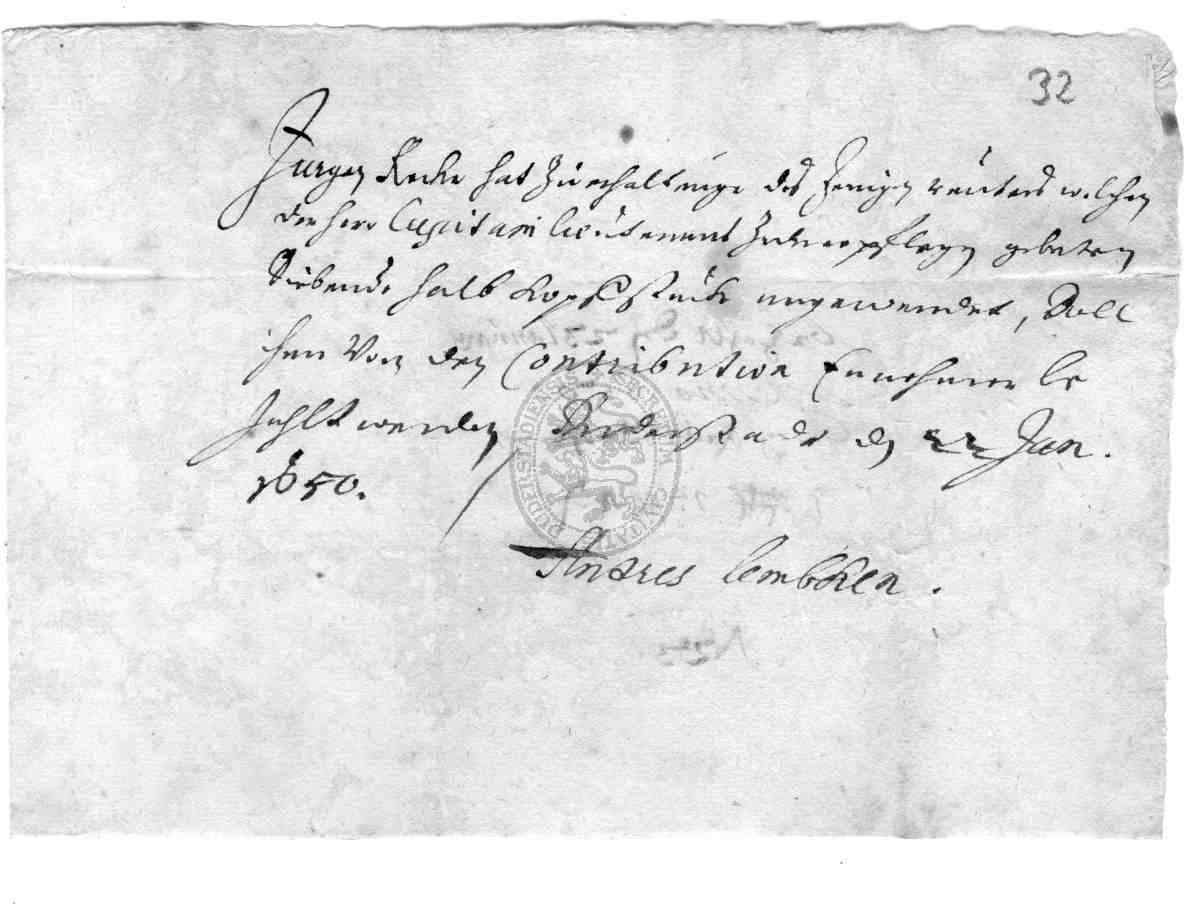 32
Jurgen Recke hat Zu erhaltunge des Jenigen reuters welchen
der herr Capitain lieutenant Zuverpflegen gebeten
Siebende halb Kopfstücke angewendet, Soll
ihm Von den Contribution Einnehmer be
zahlt werden, Duderstadt den 22 Jan.
1650.
Andres Lembken.